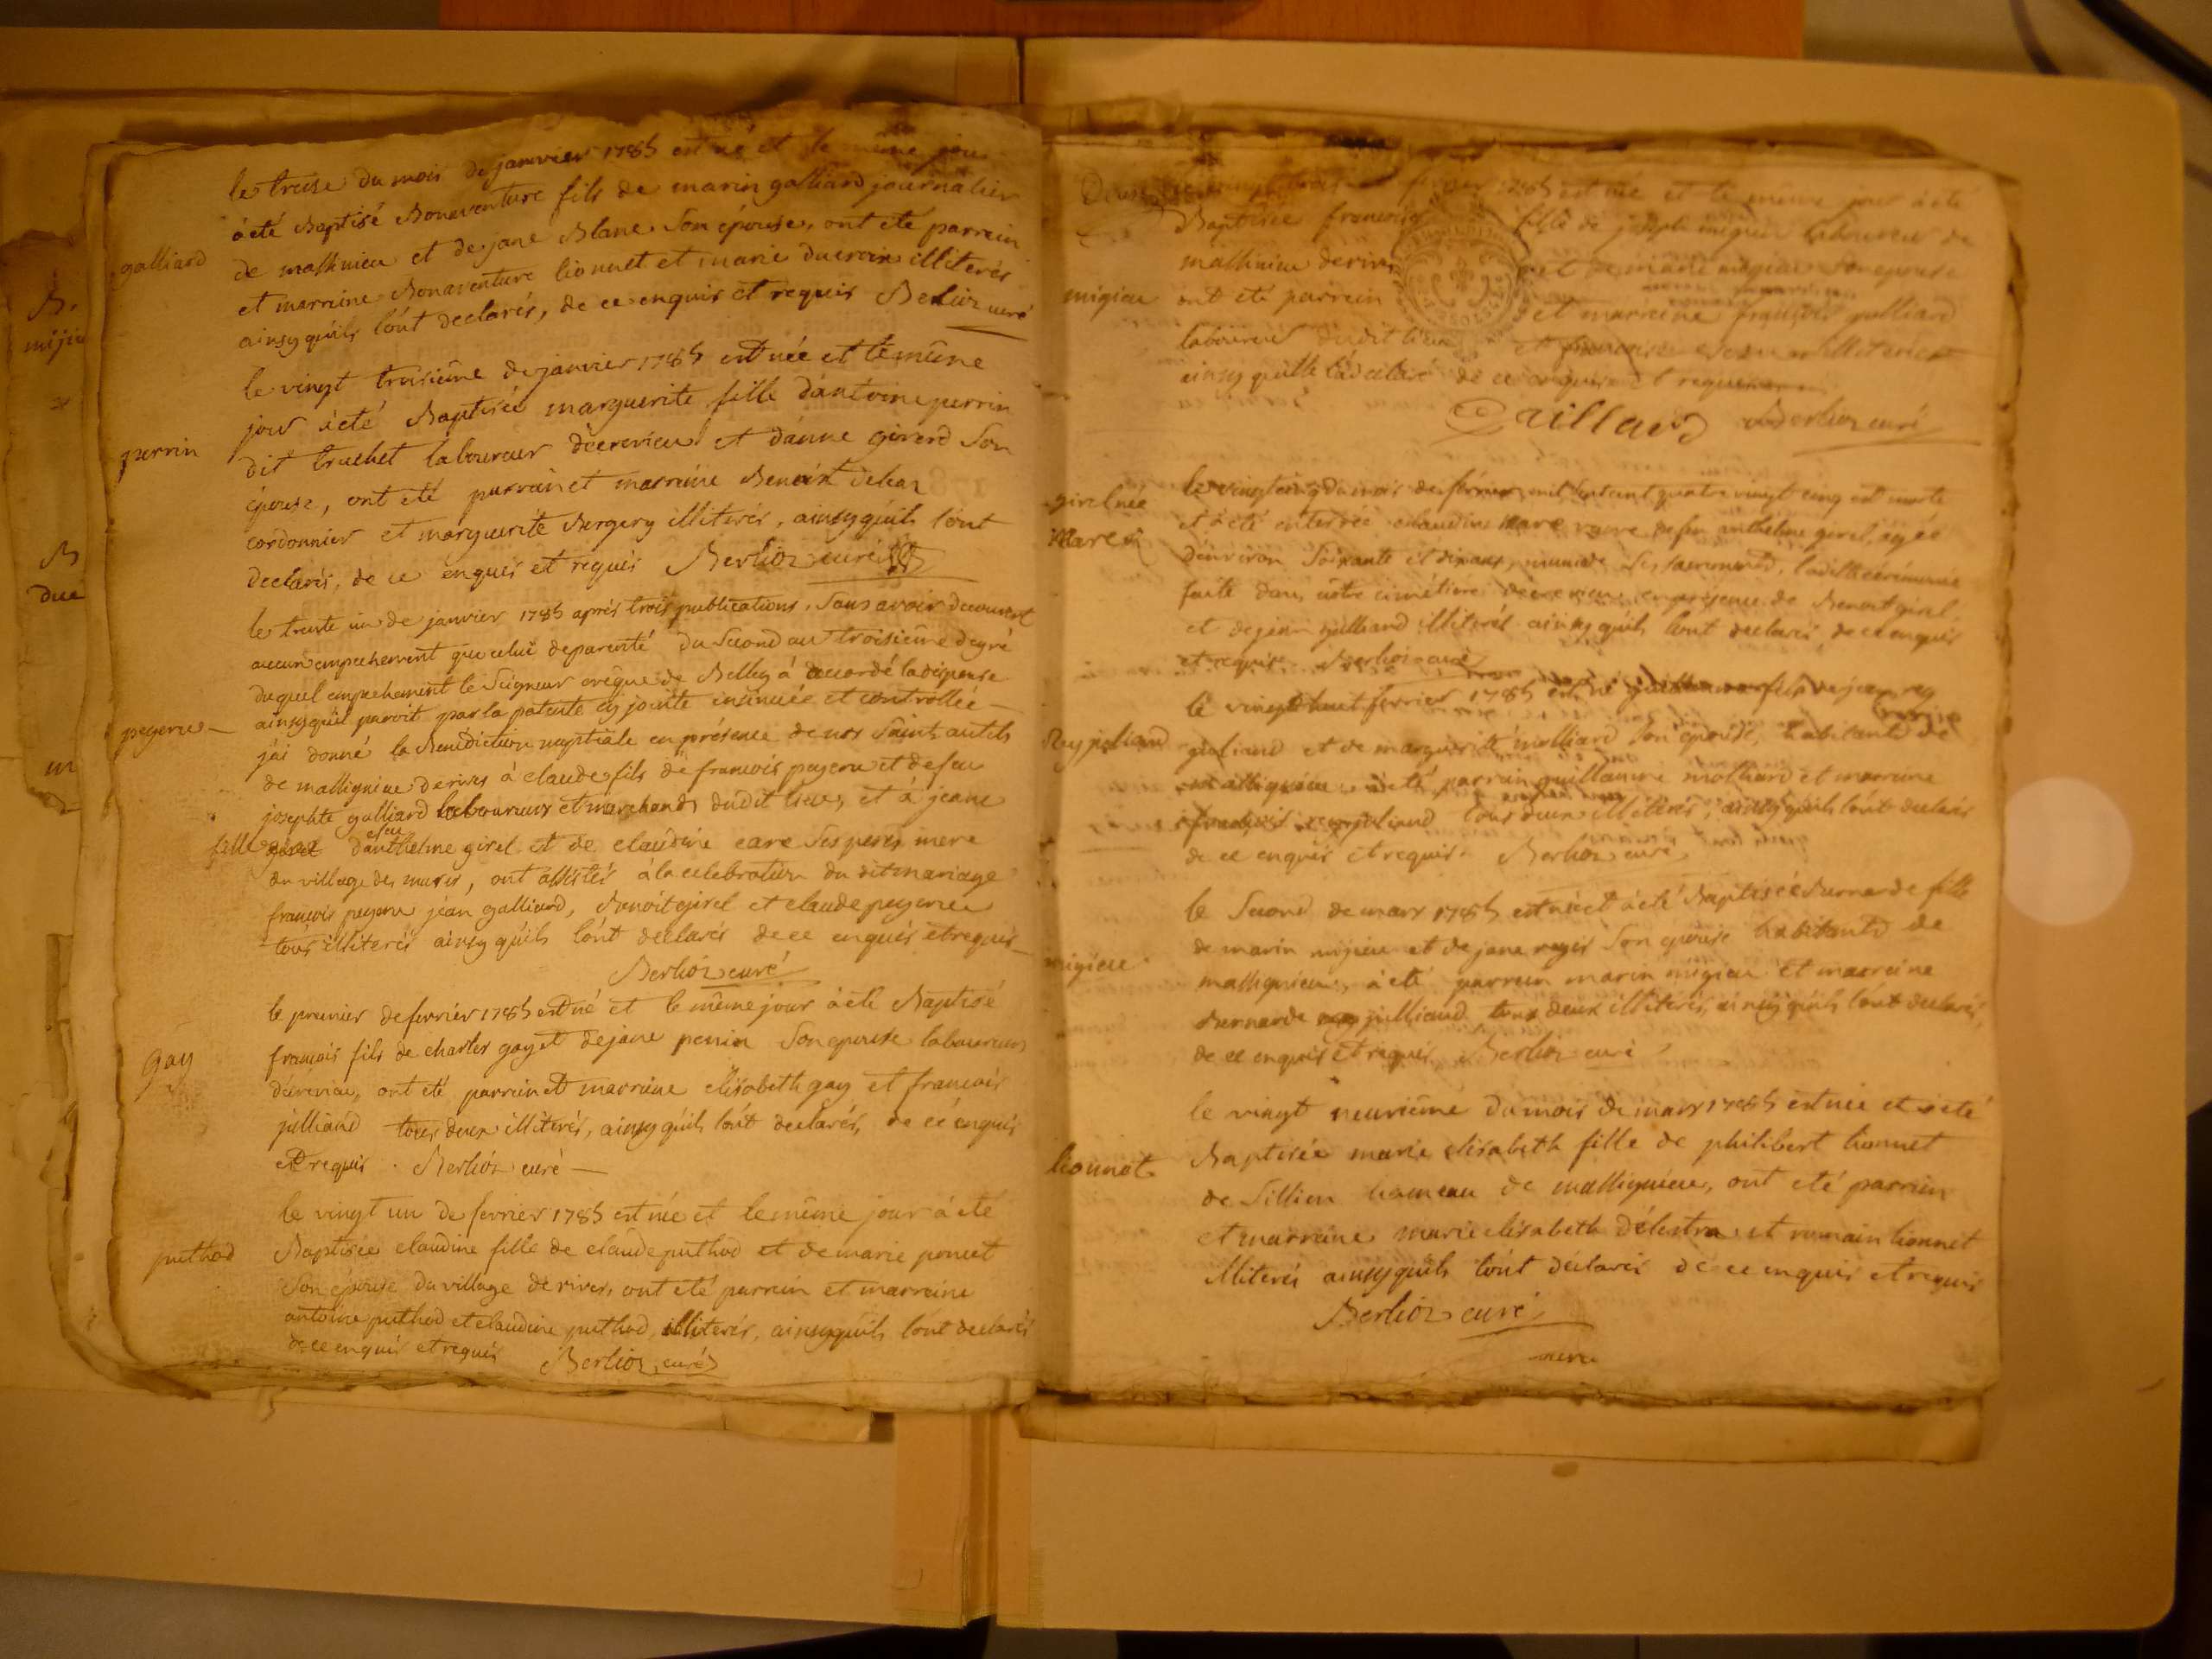 le treise du mois de janvier 1785 est né et le même jour
à été Baptisé Bonaventure fils de marin galliard journalier
galliard
de mathinieu et de jane Blanc son épouse, ont été parrein
et marreine Bonaventure lionnet et marie ducroix illiterés
ainsy qúils l'ont declarés, de ce enquis et requis Berlioz curé
le vingt troisième de janvier 1785 est née et le même
jour à été Baptisée marguerite fille d'antoine perrin
perrin
dit truchet laboureur d'ecrevieu et d'anne girerd son
épouse, ont été parrain et marreine Benoit
cordonnier et marguerite Bergery illiterés, ainsy qúils l'ont
declarés, de ce enquis et requis Berlioz curé
le trente un de janvier 1785 aprés trois publications, sans avoir decouvert
aucun empechement que celui de parenté du second au troisième degré
duquel empechement le Seigneur evêque de Belley à accordé la dispense
ainsy qu'il paroit par la patente cy jointe insinuée et controllée
pegeru
j'ai donné la Benediction nuptiale en présence de nos saints autels
de mathignieu de rives à claude fils de francois pegeru et de feu
josephte galliard laboureurs et marchands dudit lieu, et à jeane
fille d'anthelme girel et de claudine care ses peres mere
efeu
du village des mares, ont assistés à la celebration du dit mariage
francois pegeru jéan galliard, Benoit girel et claude pegeru
tous illiterés ainsy qúils l'ont declarés de ce enquis et requis
Berlioz curé
le premier de fevrier 1785 est né et le même jour à été Baptisé
gay
francois fils de charles gay et de jane penin son epouse laboureurs
d'ecrevieu, ont été parrein et marreine elisabeth gay et francois
julliand tous deux illiterés, ainsy qúils l'ont declarés, de ce enquis
et requis. Berlioz curé
le vingt un de fevrier 1785 est née et le même jour à été
puthod
Baptisée claudine fille de claude puthod et de marie poncet
son épouse du village de rives, ont été parrein et marreine
antoine puthod et claudine puthod, illiterés, ainsy qúils l'ont declarés
de ce enquis et requis Berlioz curé
fevrier 1785 est née et le même jour à été
Baptisée francoise fille de joseph migieu laboureur de
mathinieu de rives et de marie migieu son epouse
migieu
ont été parrein et marreine françois galliard
laboureur dudit lieu et
ainsy qu'elle l'a declaré de ce enquise et requise
Berlioz curé
girel née
Mare
le vingt cinq du mois de fevrier mil sept cent quatre vingt cinq est morte
et à été enterrée claudine Mare veuve de feu anthelme girel, agée
d'environ soixante et dix ans, munie de ses sacrements, la dite cérémonie
faite dans nôtre cimétière d'ecrevieu en présence de Benoit girel
et de jean julliand illiterés ainsy qúils l'ont declarés, de ce enquis
et requis. Berlioz curé
le vingt huit fevrier 1785 est né guillaume fils de jean rey
Rey juliand
juliand et de marguerite molliard son epouse, habitants de
mathignieu à été parrain guillaume molliard et marreine
francoise rey juliand tous deux illiterés, ainsy qúils l'ont declarés
de ce enquis et requis. Berlioz curé
le second de mars 1785 est née et à été Baptisée Bernarde fille
de marin migieu et de jane son epouse habitants de
migieu
mathignieu, à été parrein marin migieu et marreine
Bernarde julliand tous deux illiterés, ainsy qúils l'ont declarés,
de ce enquis et requis Berlioz curé
le vingt neuvième du mois de mars 1785 est née et à été
lionnet
Baptisée marie elisabeth fille de philibert lionnet
de Sillieu hameau de mathignieu, ont été parrein
et marreine marie elisabeth délestra et romain lionnet
illiterés ainsy qúils l'ont déclarés de ce enquis et requis
Berlioz curé